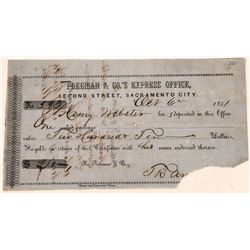 FREEMAN & CO.'S EXPRESS OFFICE,
SECOND STREET, SACRAMENTO CITY.
Oct 6 1851
No. 593
Henry Webster has deposited in this Office
One
value Two Hundred & Ten Dollars,
Payable on return of this Certificate with his name endorsed thereon.
$ 210
For Freeman & Co.